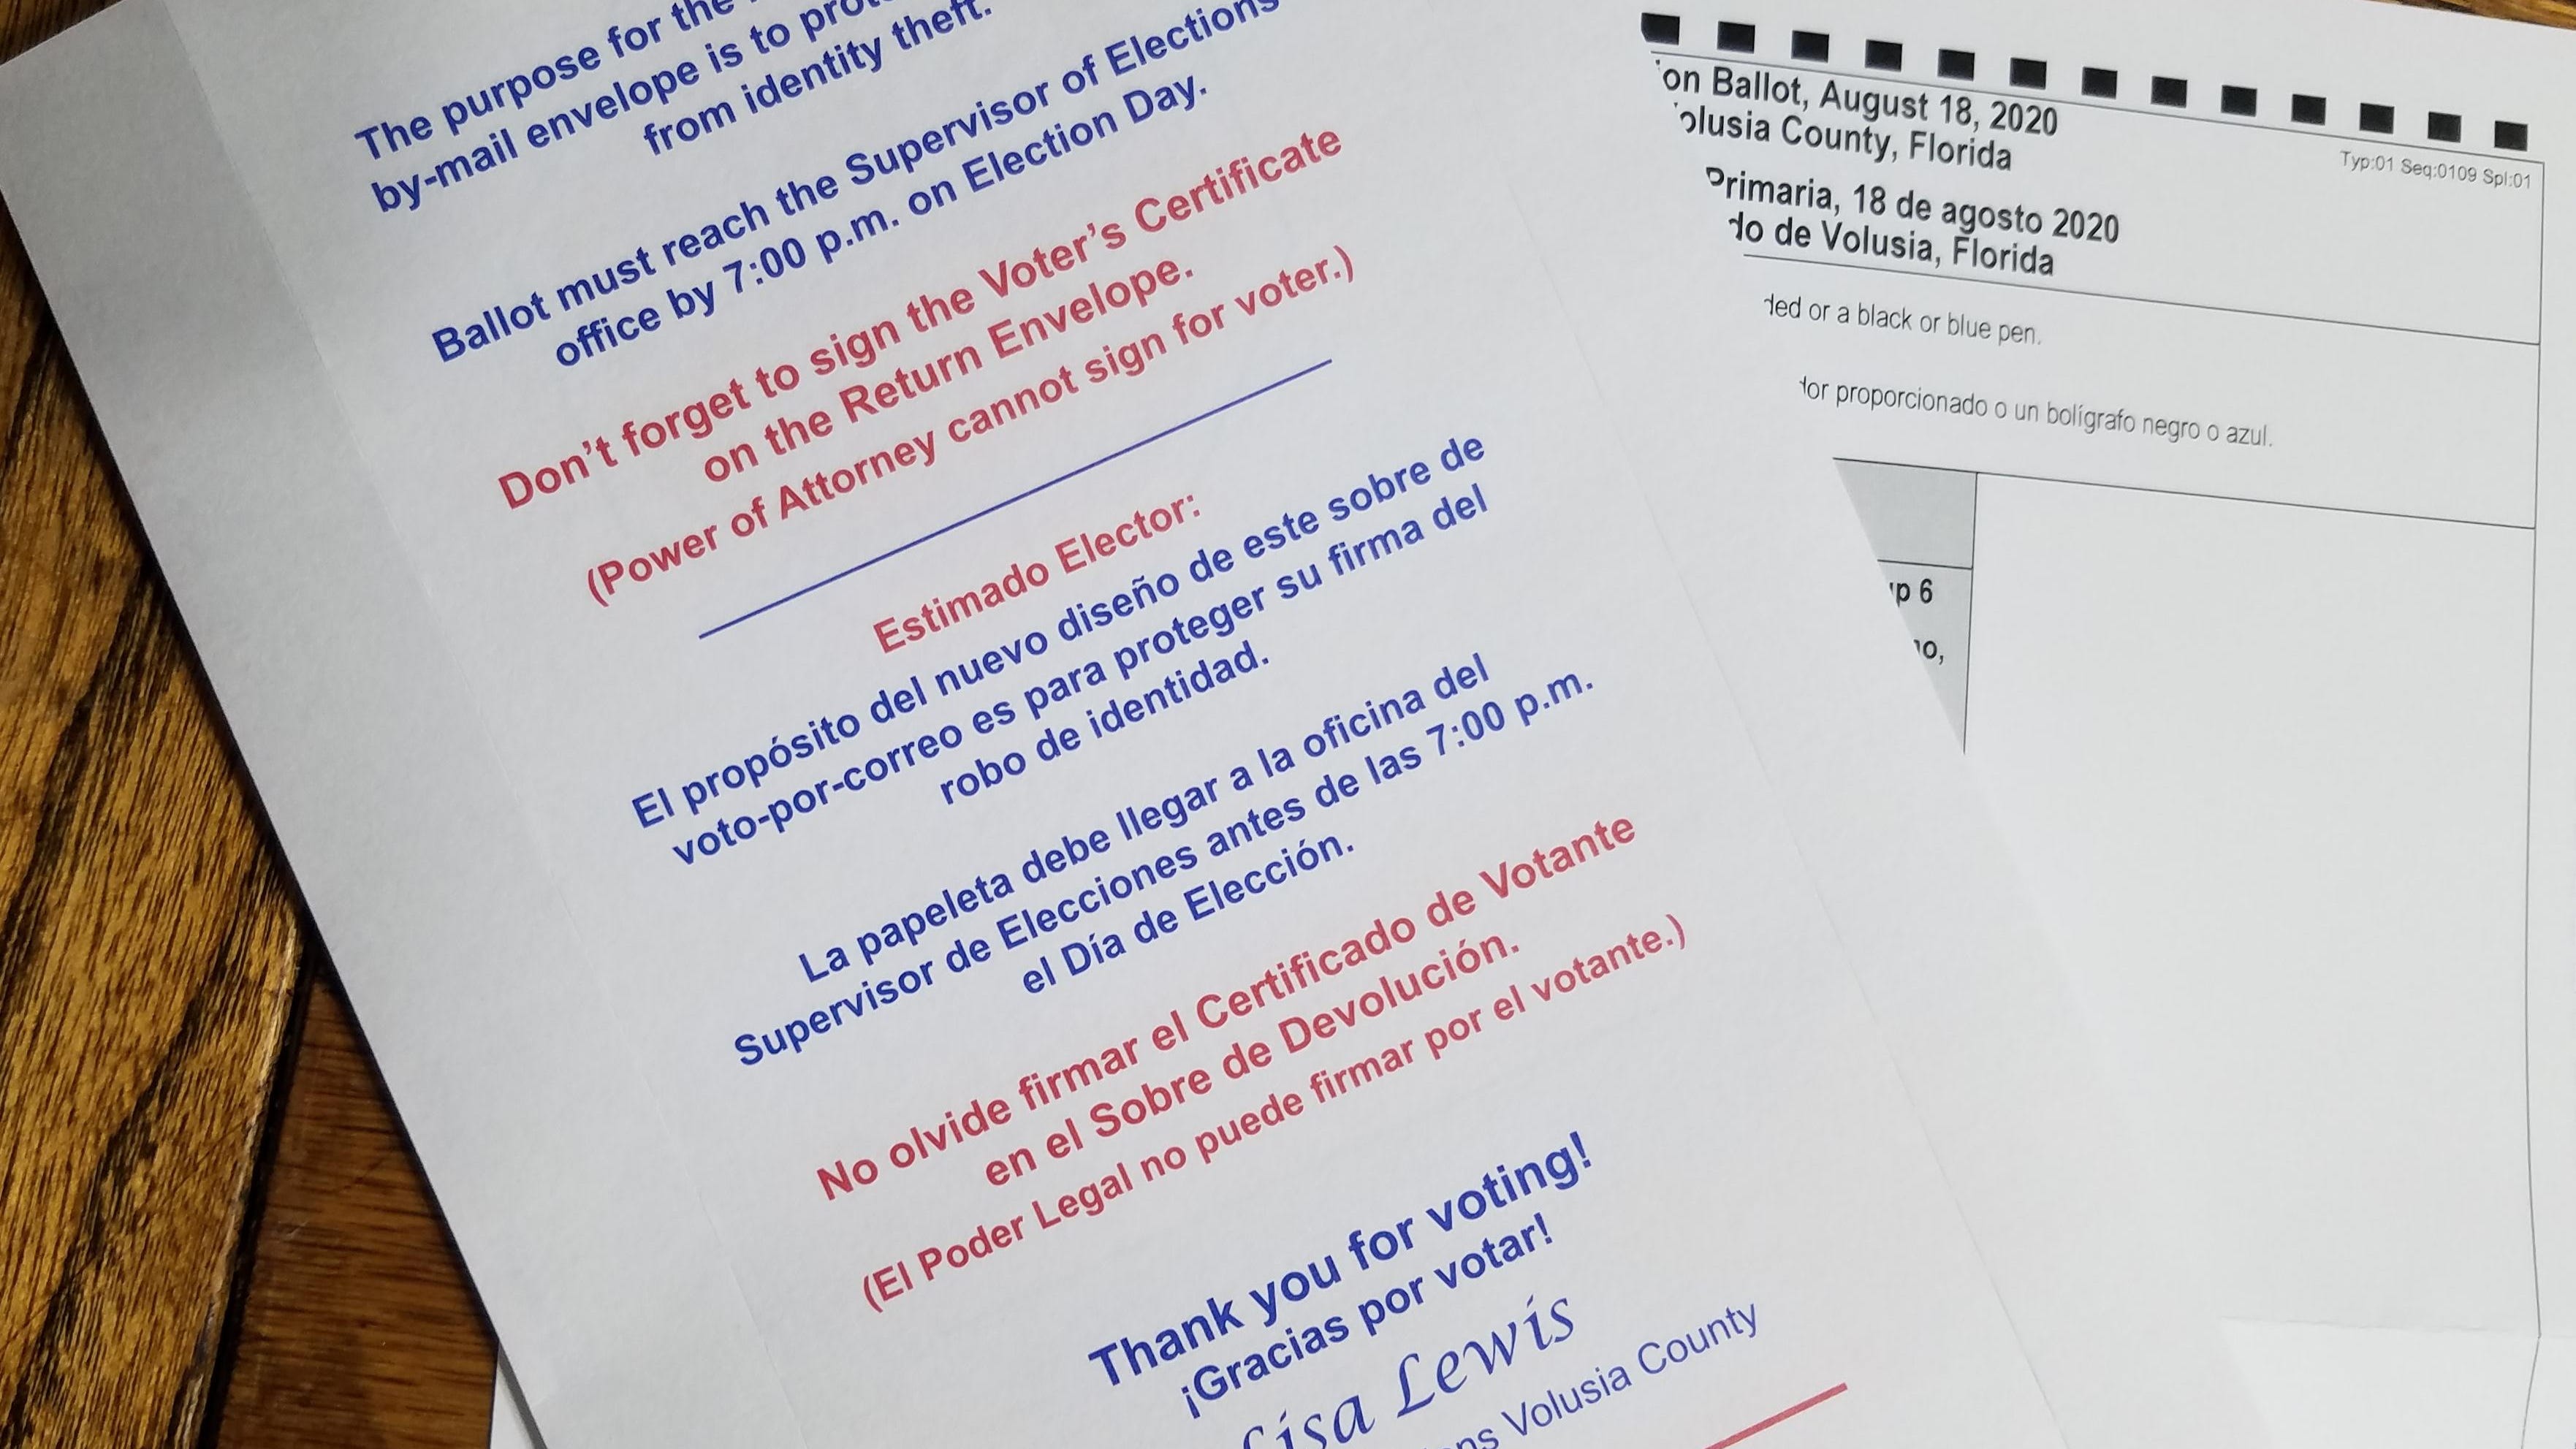 The purpose for the
by-mail envelope is to
from identity theft.
Ballot must reach the Supervisor of Elections
office by 7:00 p.m. on Election Day.
Don't forget to sign the Voter's Certificate
on the Return Envelope.
(Power of Attorney cannot sign for voter.)
Estimado Elector:
El propósito del nuevo diseño de este sobre de
voto-por-correo es para proteger su firma del
robo de identidad.
La papeleta debe llegar a la oficina del
Supervisor de Elecciones antes de las 7:00 p.m.
el Día de Elección.
No olvide firmar el Certificado de Votante
en el Sobre de Devolución.
(El Poder Legal no puede firmar por el votante.)
Thank you for voting!
¡Gracias por votar!
Lisa Lewis
Volusia County
on Ballot, August 18, 2020
olusia County, Florida
Typ:01 Seq:0109 Spl:01
Primaria, 18 de agosto 2020
do de Volusia, Florida
ded or a black or blue pen.
dor proporcionado o un bolígrafo negro o azul.
p 6